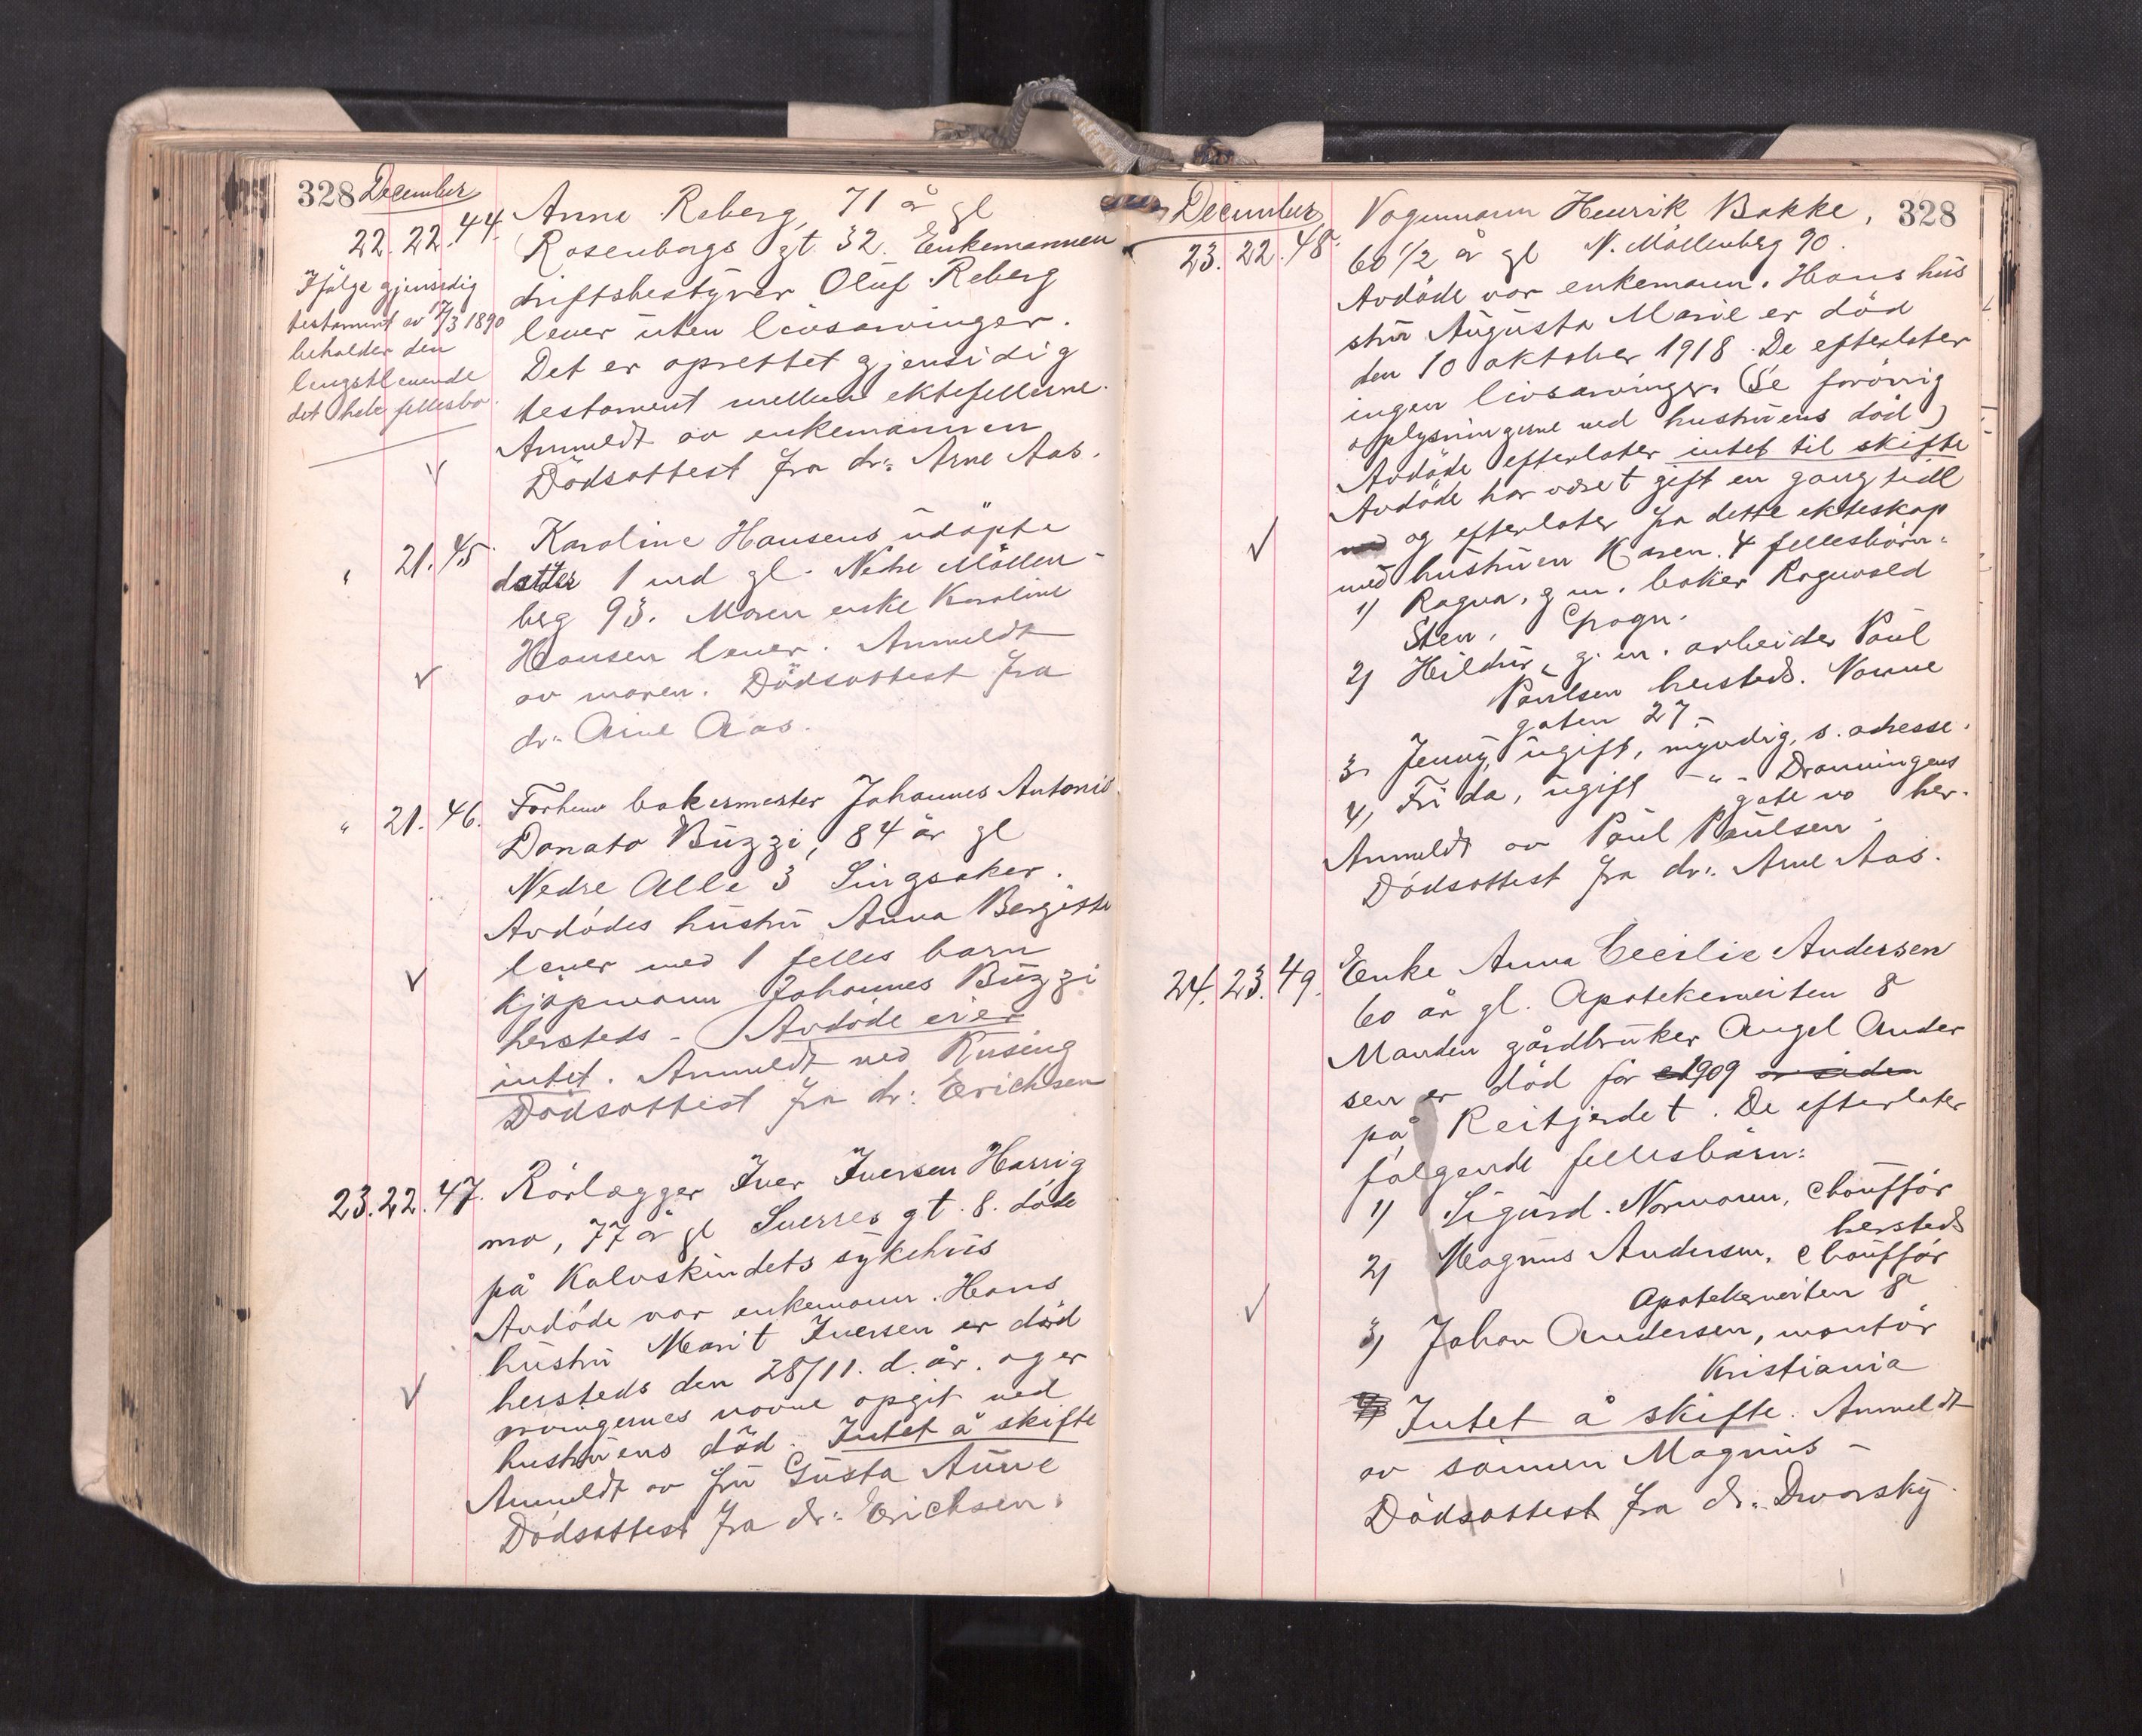 328 December
22. 22. 44. Anna Reberg, 71 år gl
Rosenborgs gt. 32. Enkemannen
driftsbestyrer Oluf Reberg
lever uten livsarvinger.
Det er oprettet gjensidig
testament mellem ektefellerne.
Anmeldt av enkemannen
Dödsattest fra dr: Arne Aas.
Ifölge gjensidig
testament av 17/3 1890
beholder den
lengstlevende
det hele fellesbo.
" 21. 45. Karoline Hansens udöpte
datter 1 md gl. Nedre Möllen-
berg 93. Moren enke Karoline
Hansen lever. Anmeldt
av moren. Dödsattest fra
dr: Arne Aas.
" 21. 46. Forhenv bakermester Johannes Antonio
Donato Buzzi, 84 år gl
Nedre Alle 3 Singsaker.
Avdödes hustru Anna Bergitte
lever med 1 felles barn
kjöpmann Johannes Buzzi
hersteds - Avdöde eier
intet. Anmeldt ved Rusing
Dödsattest fra dr: Erichsen
23. 22. 47. Rörlegger Iver Iversen Harrig
mo, 77 år gl Sverres gt. 8. döde
på Kalvskindets sykehus
Avdöde var enkemann. Hans
hustru Marit Iversen er död
hersteds den 28/11. d. år. og er
arvingernes navne opgit ved
hustruens död. Intet å skifte
Anmeldt av fru Gusta Aune
Dödsattest fra dr: Erichsen.
December 328
23. 22. 48. Vognmann Henrik Bakke,
60 1/2 år gl N. Möllenberg 90.
Avdöde var enkemann. Hans hus
stru Augusta Marie er död
den 10 oktober 1918. De efterlater
ingen livsarvinger. (Se forövrig
oplysningerne ved hustruens död)
Avdöde efterlater intet til skifte
Avdöde har været gift en gang tidl
og efterlater fra dette ekteskap
med hustruen Karen. 4 fellesbörn:
1) Ragna, g. m. baker Ragnvald
Sten, Copagn.
2) Hildur, g. m. arbeider Paul
Paulsen hersteds. Nonne
gaten 27.-
3. Jenny, ugift, myndig, s. adresse.
4, Frida, ugift -"- Dronningens
gate no her.
Anmeldt av Paul Paulsen.
Dödsattest fra dr: Arne Aas.
24. 23. 49. Enke Anna Cecilie Andersen
60 år gl. Apotekerveiten 8
Manden gårdbruker Angel Ander
sen er död för 1909 av siden
på Reitjerdet. De efterlater
fölgende fellesbörn:
1) Sigurd. Normann, chaufför
hersteds
2) Magnus Andersen, chaufför
Apotekerveiten 8
3) Johan Andersen, montör
Kristiania
Intet å skifte. Anmeldt
av sönnen Magnus -
Dödsattest fra dr: Dworsky.